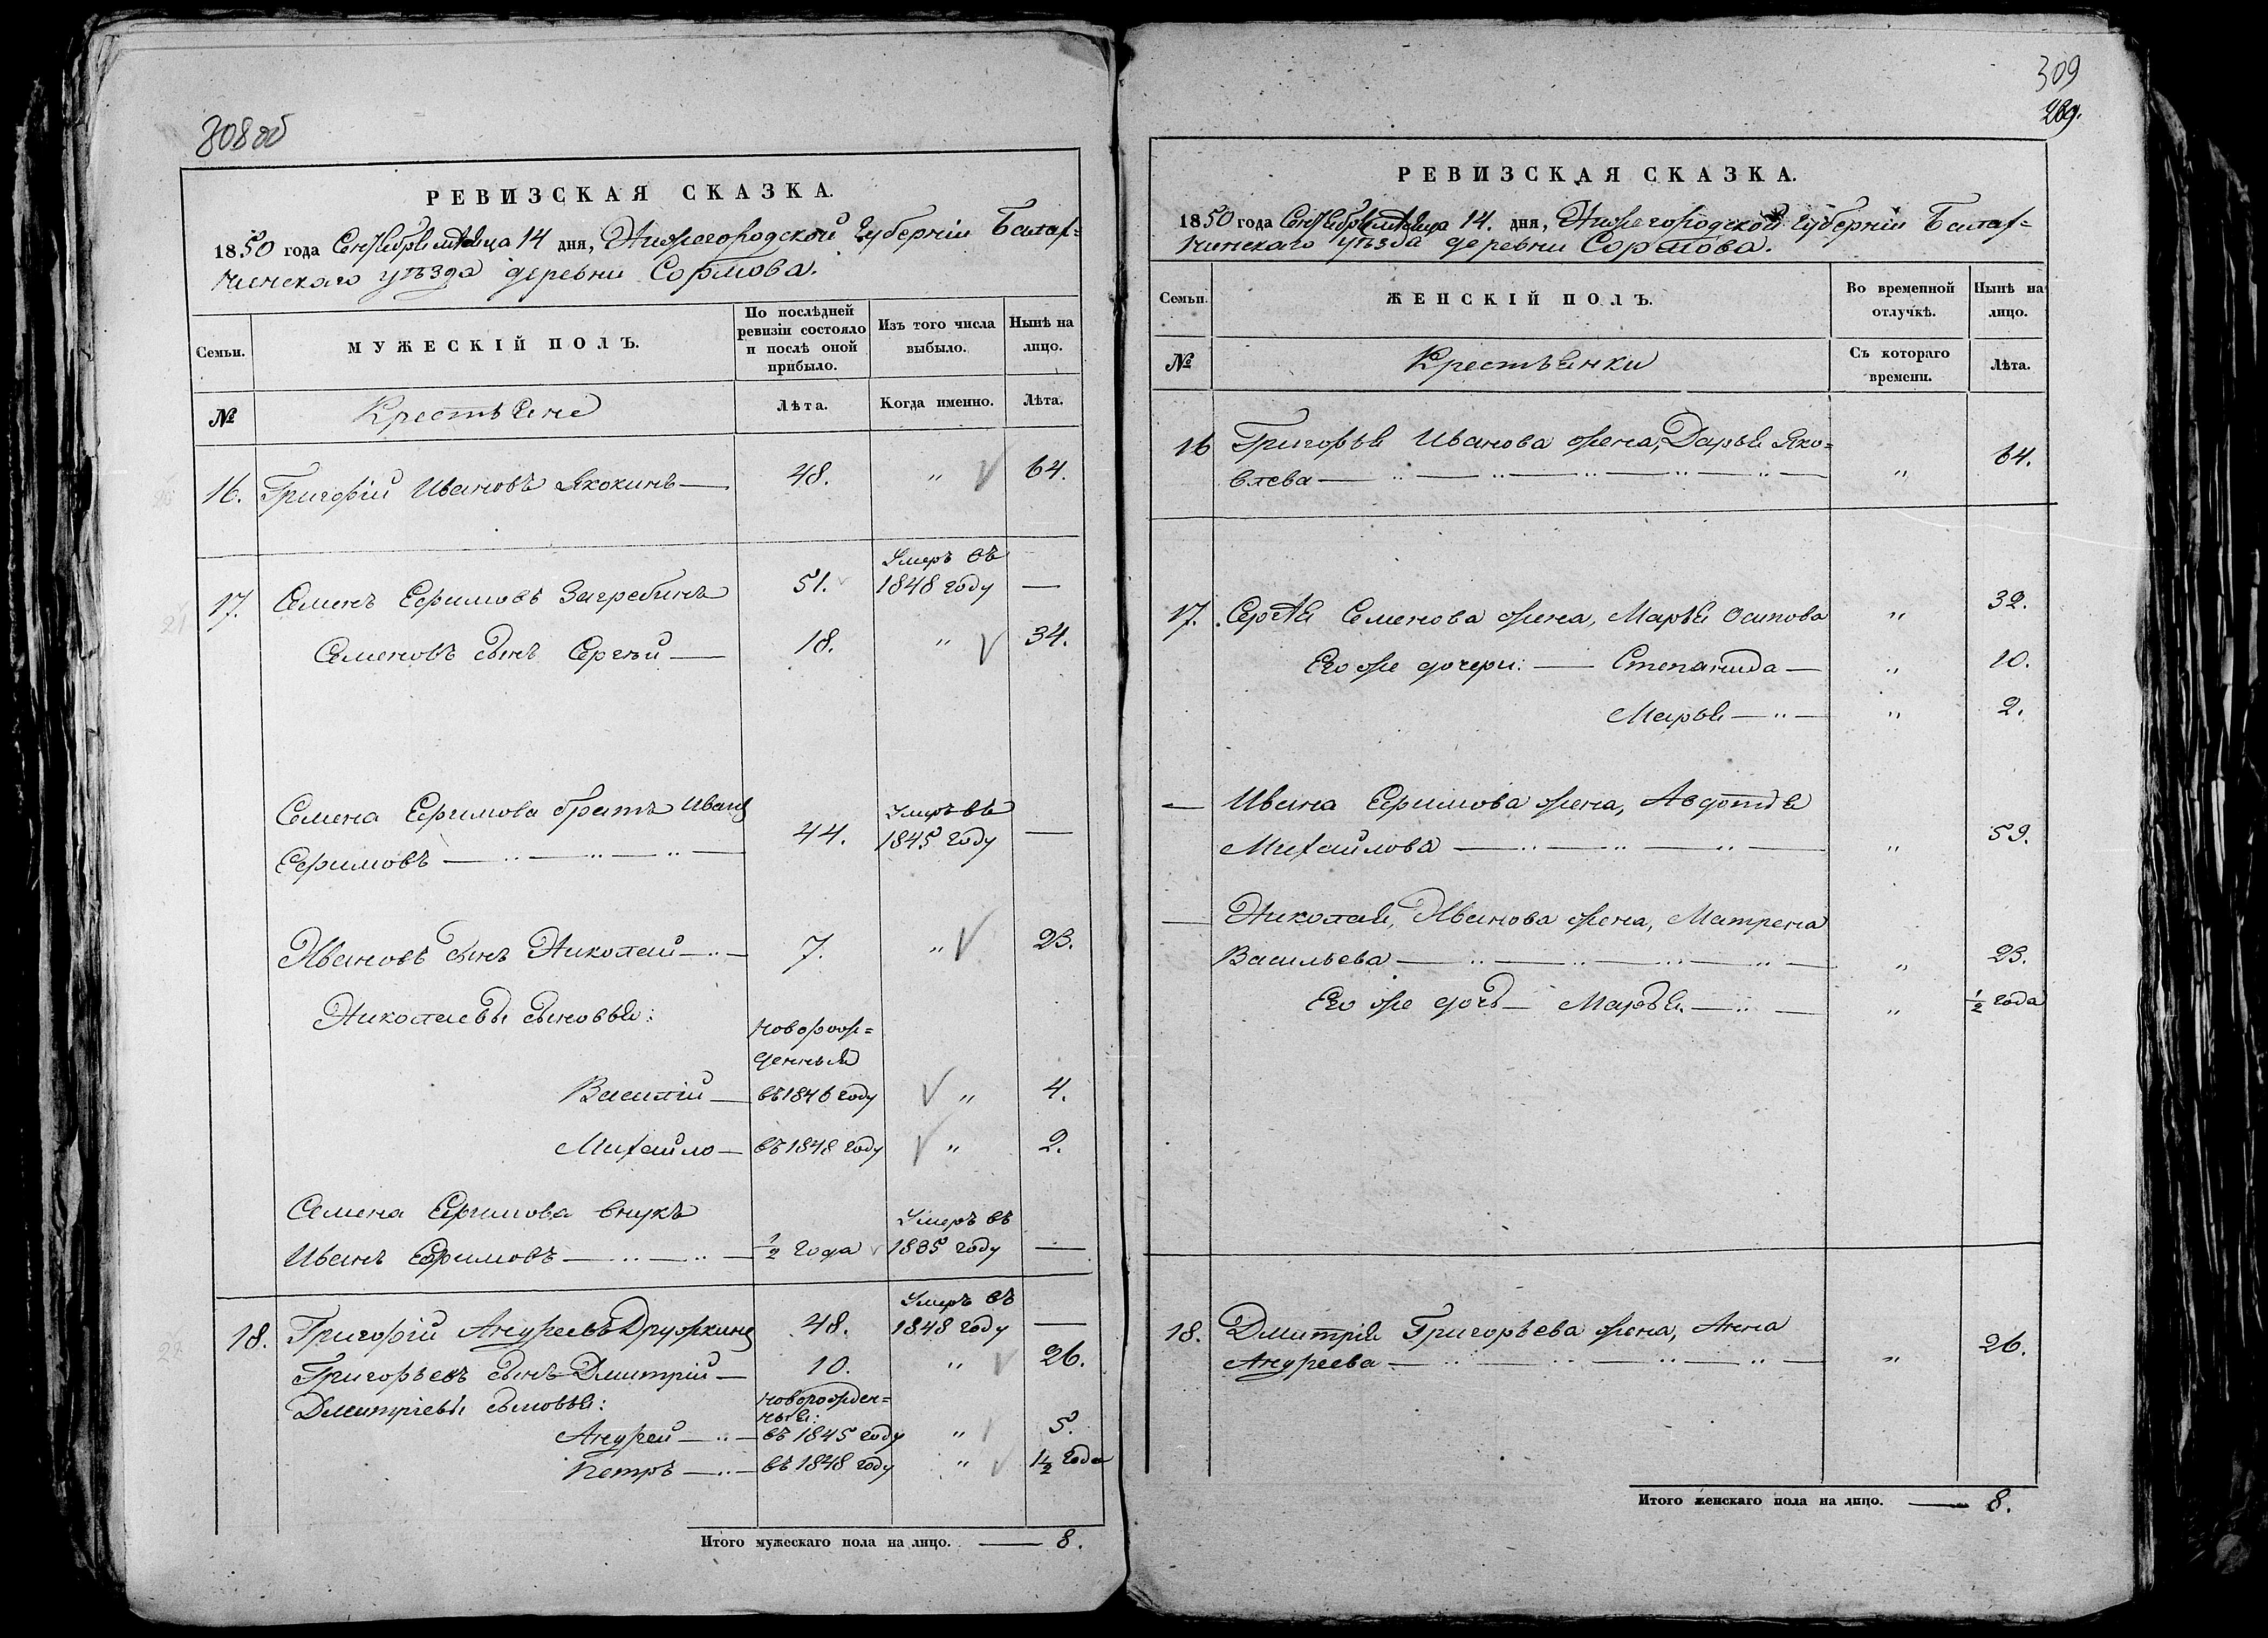 308 об
РЕВИЗСКАЯ СКАЗКА.
1850 года Сентября месяца 14 дня, Нижегородской Губерніи Балах-
нинскаго уѣзда деревни Сормова.
Семьи.
МУЖЕСКІЙ ПОЛЪ.
По послѣдней
ревизіи состояло
и послѣ оной
прибыло.
Изъ того числа
выбыло.
Нынѣ на
лицо.
№
Крестьяне
Лѣта.
Когда именно.
Лѣта.
16. Григорій Ивановъ Якокинъ — 48. " 64.
Умеръ въ
17. Семенъ Ефимовъ Загребинъ 51. 1848 году —
Семеновъ сынъ Сергѣй — 18. " 34.
Семена Ефимова братъ Иванъ
Умеръ въ
Ефимовъ — 44. 1845 году —
Ивановъ сынъ Николай — 7. " 23.
Николаевы сыновья:
Новорож=
денныя
Василій — въ 1846 году " 4.
Михайло — въ 1848 году " 2.
Семена Ефимова внукъ
Умеръ въ
Иванъ Ефимовъ — ½ года 1835 году —
Умеръ въ
18. Григорій Андреевъ Дружкинъ 48. 1848 году —
Григорьевъ сынъ Дмитрій — 10. " 26.
Дмитріевы сыновья:
Новорожден=
ныя:
Андрей — въ 1845 году " 5.
Петръ — въ 1848 году " 1½ года
Итого мужескаго пола на лицо. — 8.
309
289.
РЕВИЗСКАЯ СКАЗКА.
1850 года Сентября месяца 14. дня, Нижегородской Губерніи Балах=
нинскаго уѣзда деревни Сормова.
Семьи.
ЖЕНСКІЙ ПОЛЪ.
Во временной
отлучкѣ.
Нынѣ на
лицо.
№
Крестьянки
Съ котораго
времени.
Лѣта.
16 Григорья Иванова жена, Дарья Яко=
влева — " 64.
17. Сергѣя Семенова жена, Марья Осипова " 32.
Его же дочери: — Степанида — " 10.
Марья — " 2.
— Ивана Ефимова жена, Авдотья
Михайлова — " 59.
— Николая, Иванова жена, Матрена
Васильева — " 23.
Его же дочь — Марья. — " ½ года
18. Дмитрія Григорьева жена, Анна
Андреева — " 26.
Итого женскаго пола на лицо. — 8.